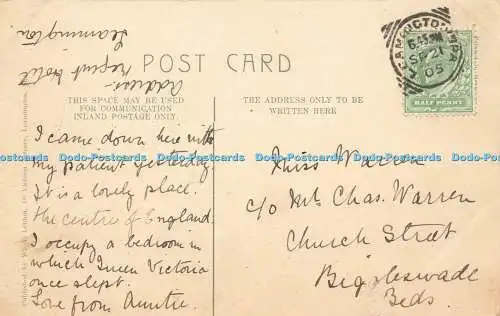 Address-
Regent Hotel
Leamington.
POST CARD
THIS SPACE MAY BE USED
FOR COMMUNICATION
INLAND POSTAGE ONLY.
THE ADDRESS ONLY TO BE
WRITTEN HERE
LEAMINGTON SPA
6.45 PM
SP 21
05
HALF PENNY
I came down here with
my patient yesterday
It is a lovely place.
the centre of England.
I occupy a bedroom in
which Queen Victoria
once slept.
Love from Auntie.
Miss Warren
c/o Mr Chas. Warren
Church Street
Biggleswade
Beds.
Dodo-Postcards Dodo-Postcards Dodo-Postcards Dodo-Postcards Dodo-Postcards
Dodo-Postcards Dodo-Postcards Dodo-Postcards Dodo-Postcards Dodo-Postcards